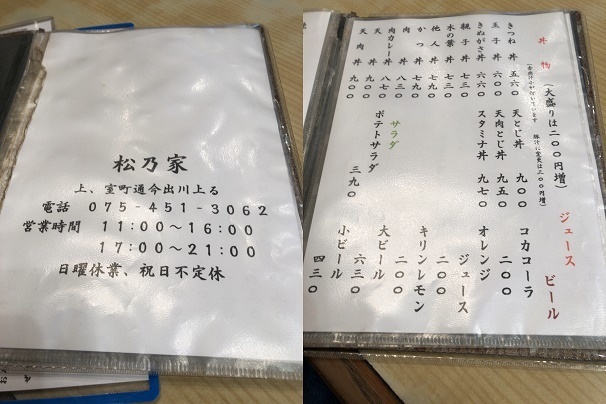 松乃家
上、室町通今出川上る
電話 075-451-3062
営業時間 11:00~16:00
17:00~21:00
日曜休業、祝日不定休
丼物 (大盛りは二〇〇円増)
きつね丼 五六〇
玉子丼 六〇〇
きぬがさ丼 六六〇
親子丼 七三〇
木の葉丼 七三〇
他人丼 七九〇
かつ丼 七九〇
肉丼 八三〇
肉カレー丼 八七〇
天丼 九〇〇
肉丼 九〇〇
天とじ丼 九〇〇
天肉とじ丼 九五〇
スタミナ丼 九七〇
サラダ
ポテトサラダ 三九〇
ジュース
コカコーラ 二〇〇
オレンジジュース 二〇〇
キリンレモン 二〇〇
ビール
大ビール 六三〇
小ビール 四三〇